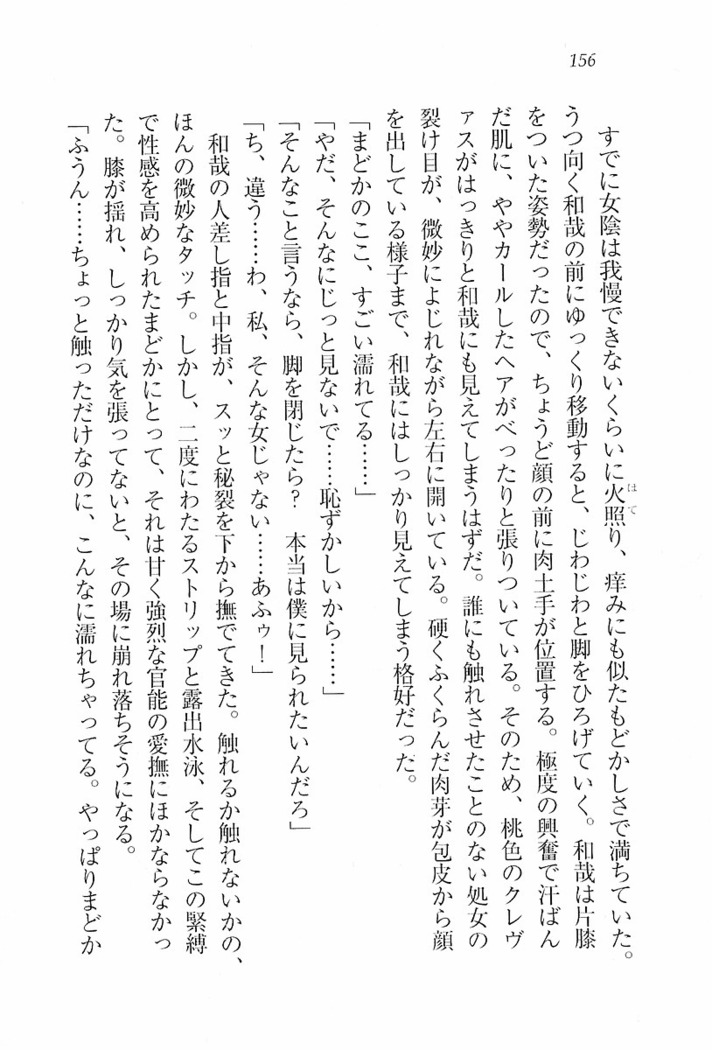 156
すでに女陰は我慢できないくらいに火照り、痒みにも似たもどかしさで満ちていた。
うつ向く和哉の前にゆっくり移動すると、じわじわと脚をひろげていく。和哉は片膝
をついた姿勢だったので、ちょうど顔の前に肉土手が位置する。極度の興奮で汗ばん
だ肌に、ややカールしたヘアがべったりと張りついている。そのため、桃色のクレヴ
ァスがはっきりと和哉にも見えてしまうはずだ。誰にも触れさせたことのない処女の
裂け目が、微妙によじれながら左右に開いている。硬くふくらんだ肉芽が包皮から顔
を出している様子まで、和哉にはしっかり見えてしまう格好だった。
「まどかのここ、すごい濡れてる……」
「やだ、そんなにじっと見ないで……恥ずかしいから……」
「そんなこと言うなら、脚を閉じたら？　本当は僕に見られたいんだろ」
「ち、違う……わ、私、そんな女じゃない……あふゥ！」
和哉の人差し指と中指が、スッと秘裂を下から撫でてきた。触れるか触れないかの、
ほんの微妙なタッチ。しかし、二度にわたるストリップと露出水泳、そしてこの緊縛
で性感を高められたまどかにとって、それは甘く強烈な官能の愛撫にほかならなかっ
た。膝が揺れ、しっかり気を張ってないと、その場に崩れ落ちそうになる。
「ふうん……ちょっと触っただけなのに、こんなに濡れちゃってる。やっぱりまどか